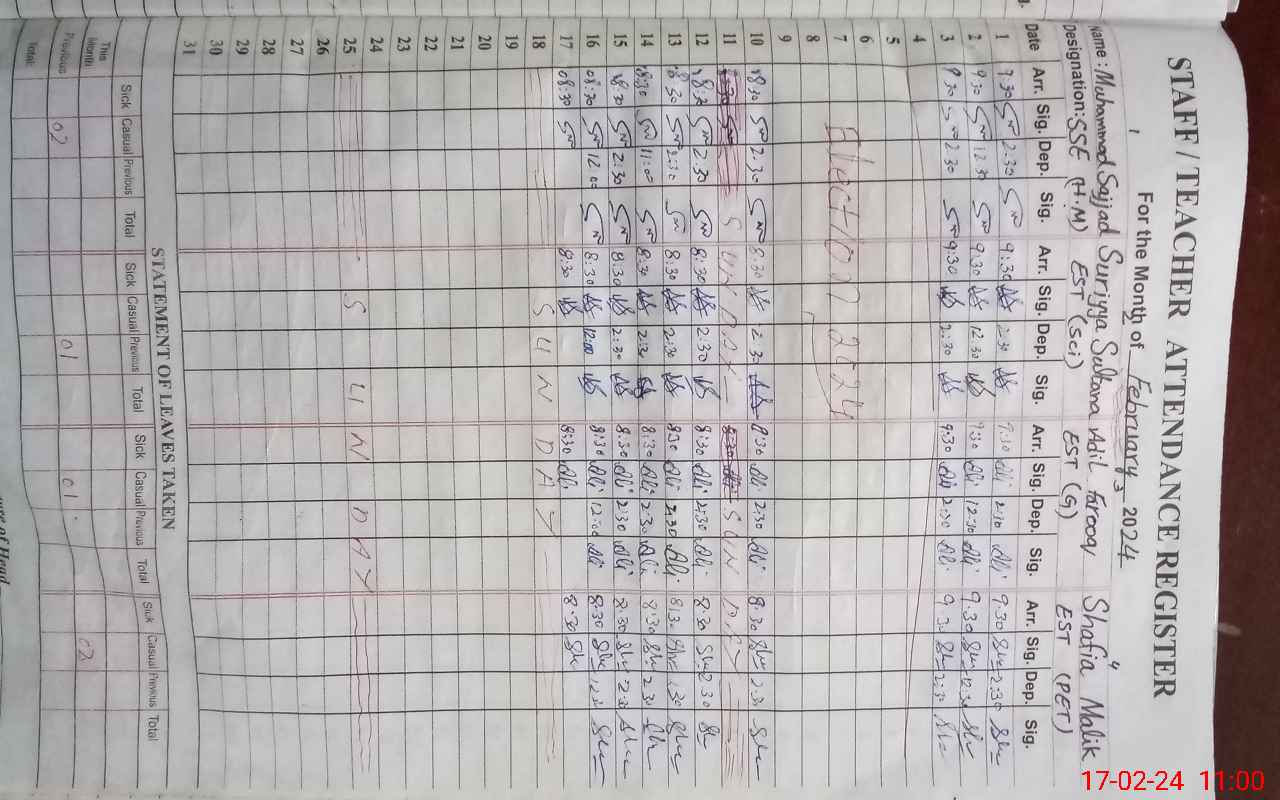 STAFF / TEACHER ATTENDANCE REGISTER
For the Month of February 2024
Name : Muhammad Sajjad Suriyya Sultana Adil Farooq Shafia Malik
Designation: SSE (H.M) EST (Sci) EST (G) EST (PET)
Date Arr. Sig. Dep. Sig. Arr. Sig. Dep. Sig. Arr. Sig. Dep. Sig. Arr. Sig. Dep. Sig.
1 9:30 2:30 9:30 2:30 9:30 2:30 9:30 2:30
2 9:30 12:30 9:30 12:30 9:30 12:30 9:30 12:30
3 9:30 2:30 9:30 2:30 9:30 2:30 9:30 2:30
4
5
6
7 Election 2024
8
9
10 8:30 2:30 8:30 2:30 8:30 2:30 8:30 2:30
11 SUNDAY SUNDAY
12 8:30 2:30 8:30 2:30 8:30 2:30 8:30 2:30
13 8:30 2:30 8:30 2:30 8:30 2:30 8:30 2:30
14 8:30 11:00 8:30 2:30 8:30 2:30 8:30 2:30
15 8:30 2:30 8:30 2:30 8:30 2:30 8:30 2:30
16 08:30 12:00 8:30 12:00 8:30 12:00 8:30
17 08:30 8:30 8:30 8:30
18 SUNDAY
19
20
21
22
23
24
25 SUNDAY
26
27
28
29
30
31
STATEMENT OF LEAVES TAKEN
Sick Casual Previous Total Sick Casual Previous Total Sick Casual Previous Total Sick Casual Previous Total
This Month
Previous 02 01 01 02
Total:
17-02-24 11:00